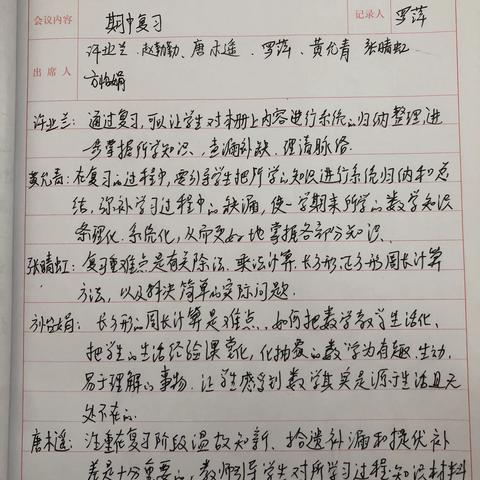 会议内容 期中复习 记录人 罗萍
许业兰、赵勤勤、唐木遥、罗萍、黄允青 张晴虹
出席人
许业兰：通过复习，可以让学生对本册上内容进行系统的归纳整理，进
步掌握所学知识，查漏补缺、理清脉络.
黄允青：在复习的过程中，要引导学生把所学的知识进行系统归纳和总
结，弥补学习过程中的缺漏，使一学期来所学的数学知识
条理化、系统化，从而更好地掌握各部分知识.
张晴虹：复习重难点是有关除法、乘法计算.长方形、正方形周长计算
方法，以及解决简单的实际问题.
长方形的周长计算是难点，如何把数学教学生活化、
把学生的生活经验课堂化，化抽象的数学为有趣、生动、
易于理解的事物.让学生感受到数学其实是源于生活且无
处不在的.
唐木遥：注重在复习阶段温故知新、拾遗补漏和提优补
差是十分重要的，教师引导学生对所学习过程知识材料